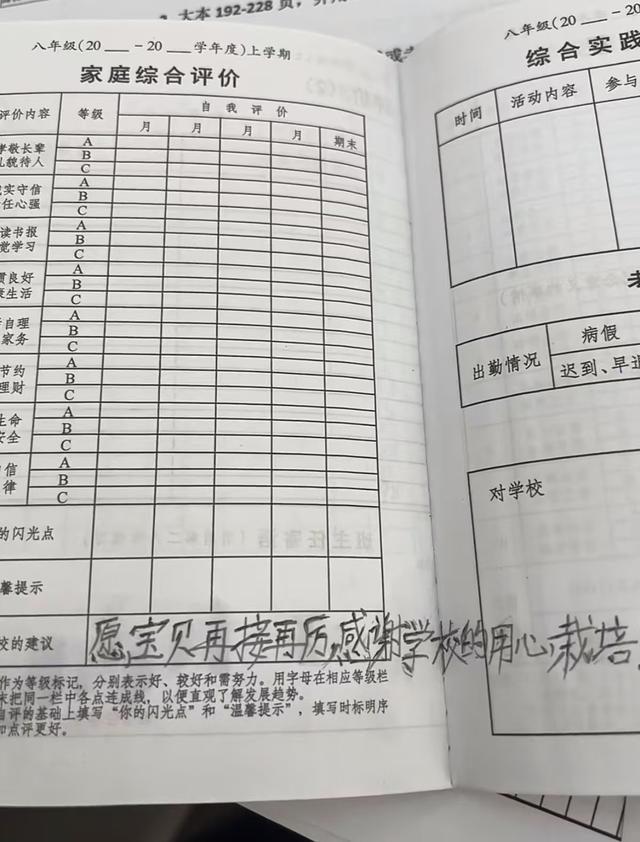 2. 大本 192-228 页,
八年级(20 ___ - 20 ___ 学年度)上学期
家庭综合评价
评价内容 等级 自我评价
月 月 月 月 期末
孝敬长辈
礼貌待人
A
B
C
实守信
任心强
A
B
C
读书报
觉学习
A
B
C
惯良好
康生活
A
B
C
自理
家务
A
B
C
节约
理财
A
B
C
生命
安全
A
B
C
信
律
A
B
C
的闪光点
馨提示
校的建议 愿,宝贝再接再厉,感谢学校的用心,栽培,
作为等级标记，分别表示好、较好和需努力。用字母在相应等级栏
末把同一栏中各点连成线，以便直观了解发展趋势。
自评的基础上填写“你的闪光点”和“温馨提示”，填写时标明序
点评更好。
八年级(20 ___ - 20
综合实践
时间 活动内容 参与
出勤情况 病假
迟到、早退
对学校